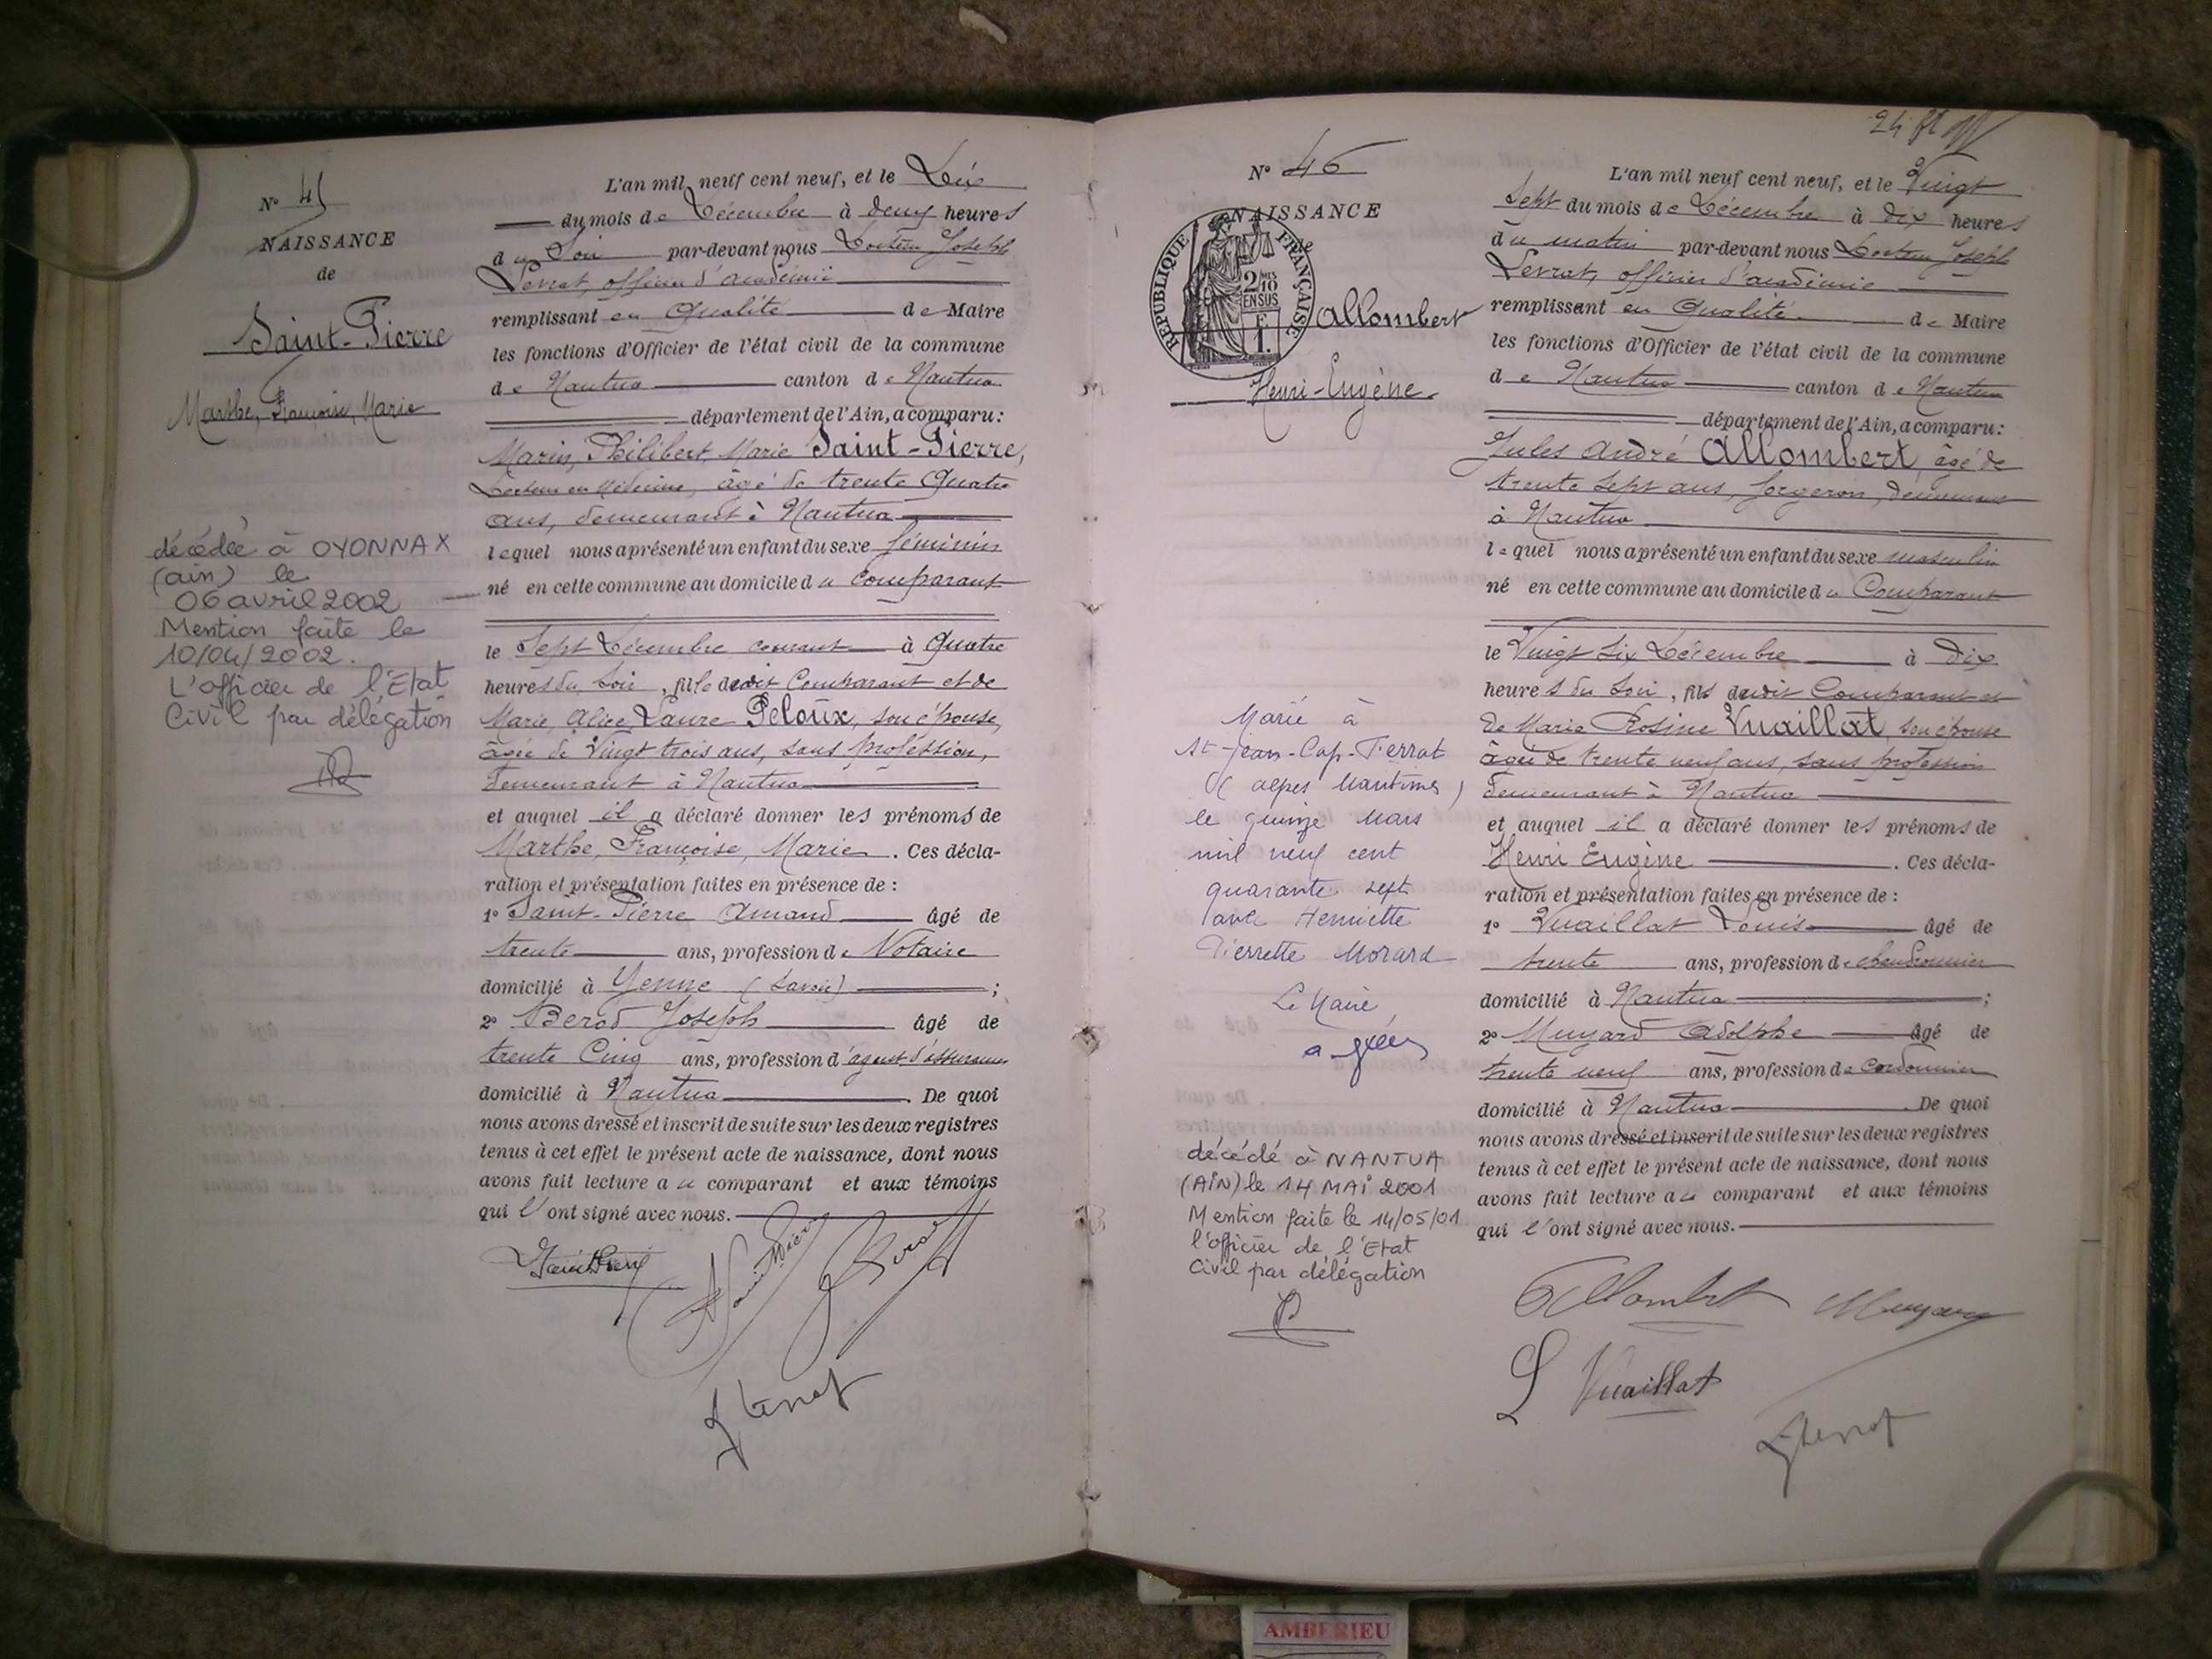 N° 45
NAISSANCE
de
Saint-Pierre
Marthe, Françoise, Marie
décédée à OYONNAX
(ain) le
06 avril 2002
Mention faite le
10/04/2002.
L'officier de l'Etat
Civil par délégation
L'an mil neuf cent neuf, et le Dix
du mois de Décembre à deux heures
du Soir par-devant nous Docteur Joseph
Levrat, officier d'académie
remplissant en Qualité de Maire
les fonctions d'Officier de l'état civil de la commune
de Nantua canton de Nantua
département de l'Ain, a comparu:
Marin, Philibert, Marie Saint-Pierre,
Docteur en Médecine, âgé de trente Quatre
ans, demeurant à Nantua
lequel nous a présenté un enfant du sexe féminin
né en cette commune au domicile du Comparant
le Sept Décembre courant à Quatre
heures du Soir, fille dudit Comparant et de
Marie, Alice Laure Peloux, son épouse,
âgée de Vingt trois ans, sans profession,
demeurant à Nantua
et auquel il a déclaré donner les prénoms de
Marthe, Françoise, Marie. Ces décla-
ration et présentation faites en présence de :
1° Saint-Pierre Amand âgé de
trente ans, profession de Notaire
domicilié à Yenne (Savoie) ;
2° Berod Joseph âgé de
trente Cinq ans, profession d'agent d'assurances
domicilié à Nantua. De quoi
nous avons dressé et inscrit de suite sur les deux registres
tenus à cet effet le présent acte de naissance, dont nous
avons fait lecture au comparant et aux témoins
qui l'ont signé avec nous.
SaintPierre
Berod
J Levrat
24
N° 46
NAISSANCE
RÉPUBLIQUE FRANÇAISE
2/10
EN SUS
1 F.
Allombert
Henri-Eugène.
Marié à
St-Jean-Cap-Ferrat
(Alpes Maritimes)
le quinze Mars
mil neuf cent
quarante sept
avec Henriette
Pierrette Morard
Le Maire,
décédé à NANTUA
(AiN) le 14 MAi 2001
Mention faite le 14/05/01
l'officier de l'Etat
Civil par délégation
L'an mil neuf cent neuf, et le Vingt
Sept du mois de Décembre à Dix heures
du matin par-devant nous Docteur Joseph
Levrat, officier d'académie
remplissant en Qualité de Maire
les fonctions d'Officier de l'état civil de la commune
de Nantua canton de Nantua
département de l'Ain, a comparu:
Jules André Allombert, âgé de
trente Sept ans, forgeron, demeurant
à Nantua
lequel nous a présenté un enfant du sexe masculin
né en cette commune au domicile du Comparant
le Vingt Six Décembre à Dix
heures du Soir, fils dudit Comparant et
de Marie Rosine Vuaillat, son épouse
âgée de trente neuf ans, sans profession
demeurant à Nantua
et auquel il a déclaré donner les prénoms de
Henri Eugène. Ces décla-
ration et présentation faites en présence de :
1° Vuaillat Louis âgé de
trente ans, profession de chaudronnier
domicilié à Nantua ;
2° Muyard Adolphe âgé de
trente neuf ans, profession de Cordonnier
domicilié à Nantua. De quoi
nous avons dressé et inscrit de suite sur les deux registres
tenus à cet effet le présent acte de naissance, dont nous
avons fait lecture au comparant et aux témoins
qui l'ont signé avec nous.
Allombert Muyard
L Vuaillat
J Levrat
AMBERIEU